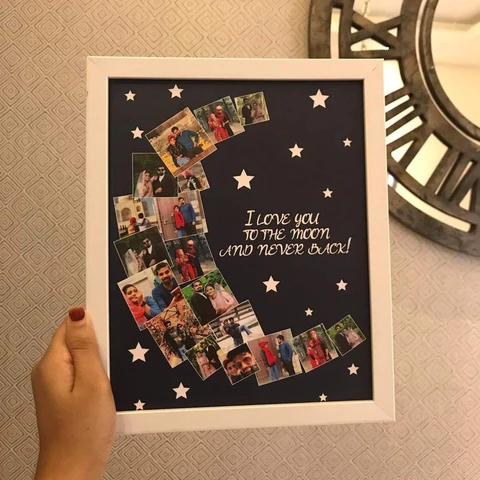 I LOVE YOU
TO THE MOON
AND NEVER BACK!